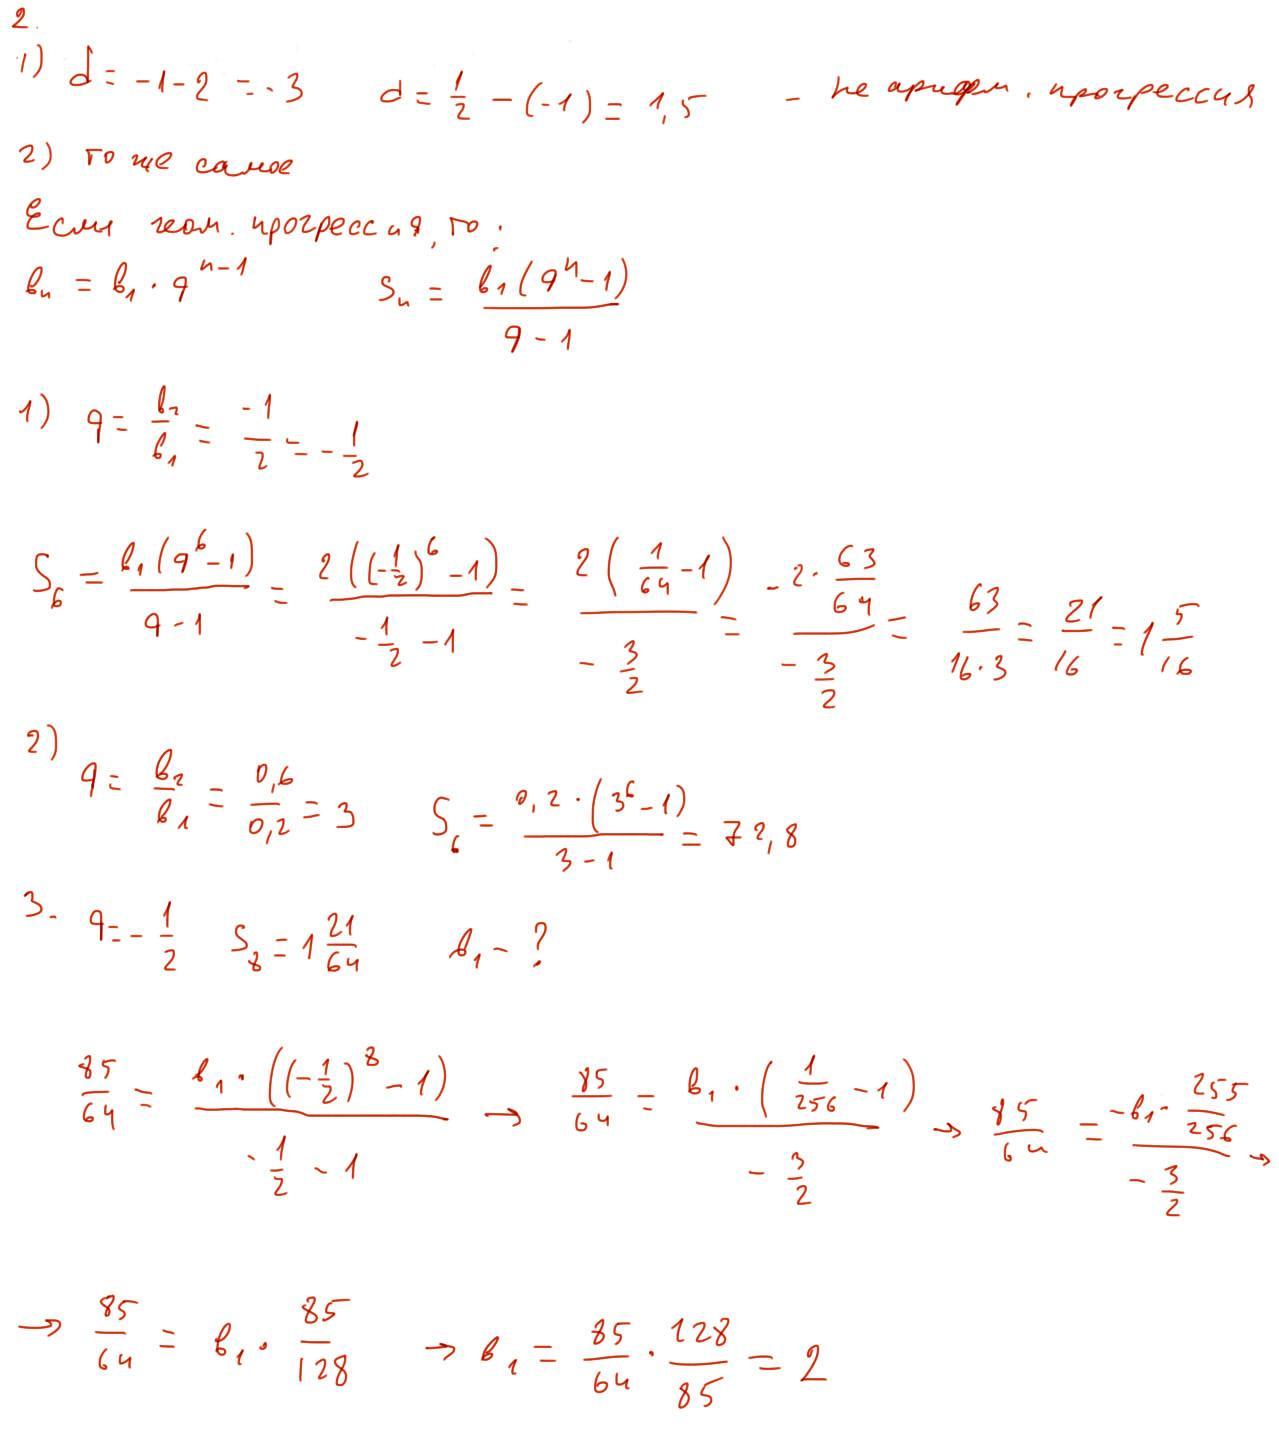 2.
1) d = -1 - 2 = -3 d = 1/2 - (-1) = 1,5 - не арифм. прогрессия
2) то же самое
Если геом. прогрессия, то:
bₙ = b₁ · qⁿ⁻¹ Sₙ = b₁(qⁿ - 1) / (q - 1)
1) q = b₂/b₁ = -1/2 = -1/2
S₆ = b₁(q⁶ - 1) / (q - 1) = 2((-1/2)⁶ - 1) / (-1/2 - 1) = 2(1/64 - 1) / (-3/2) = (-2 · 63/64) / (-3/2) = 63/(16·3) = 21/16 = 1 5/16
2) q = b₂/b₁ = 0,6/0,2 = 3 S₆ = 0,2 · (3⁶ - 1) / (3 - 1) = 72,8
3. q = -1/2 S₈ = 1 21/64 b₁ - ?
85/64 = b₁ · ((-1/2)⁸ - 1) / (-1/2 - 1) → 85/64 = b₁ · (1/256 - 1) / (-3/2) → 85/64 = (-b₁ · 255/256) / (-3/2) →
→ 85/64 = b₁ · 85/128 → b₁ = 85/64 · 128/85 = 2